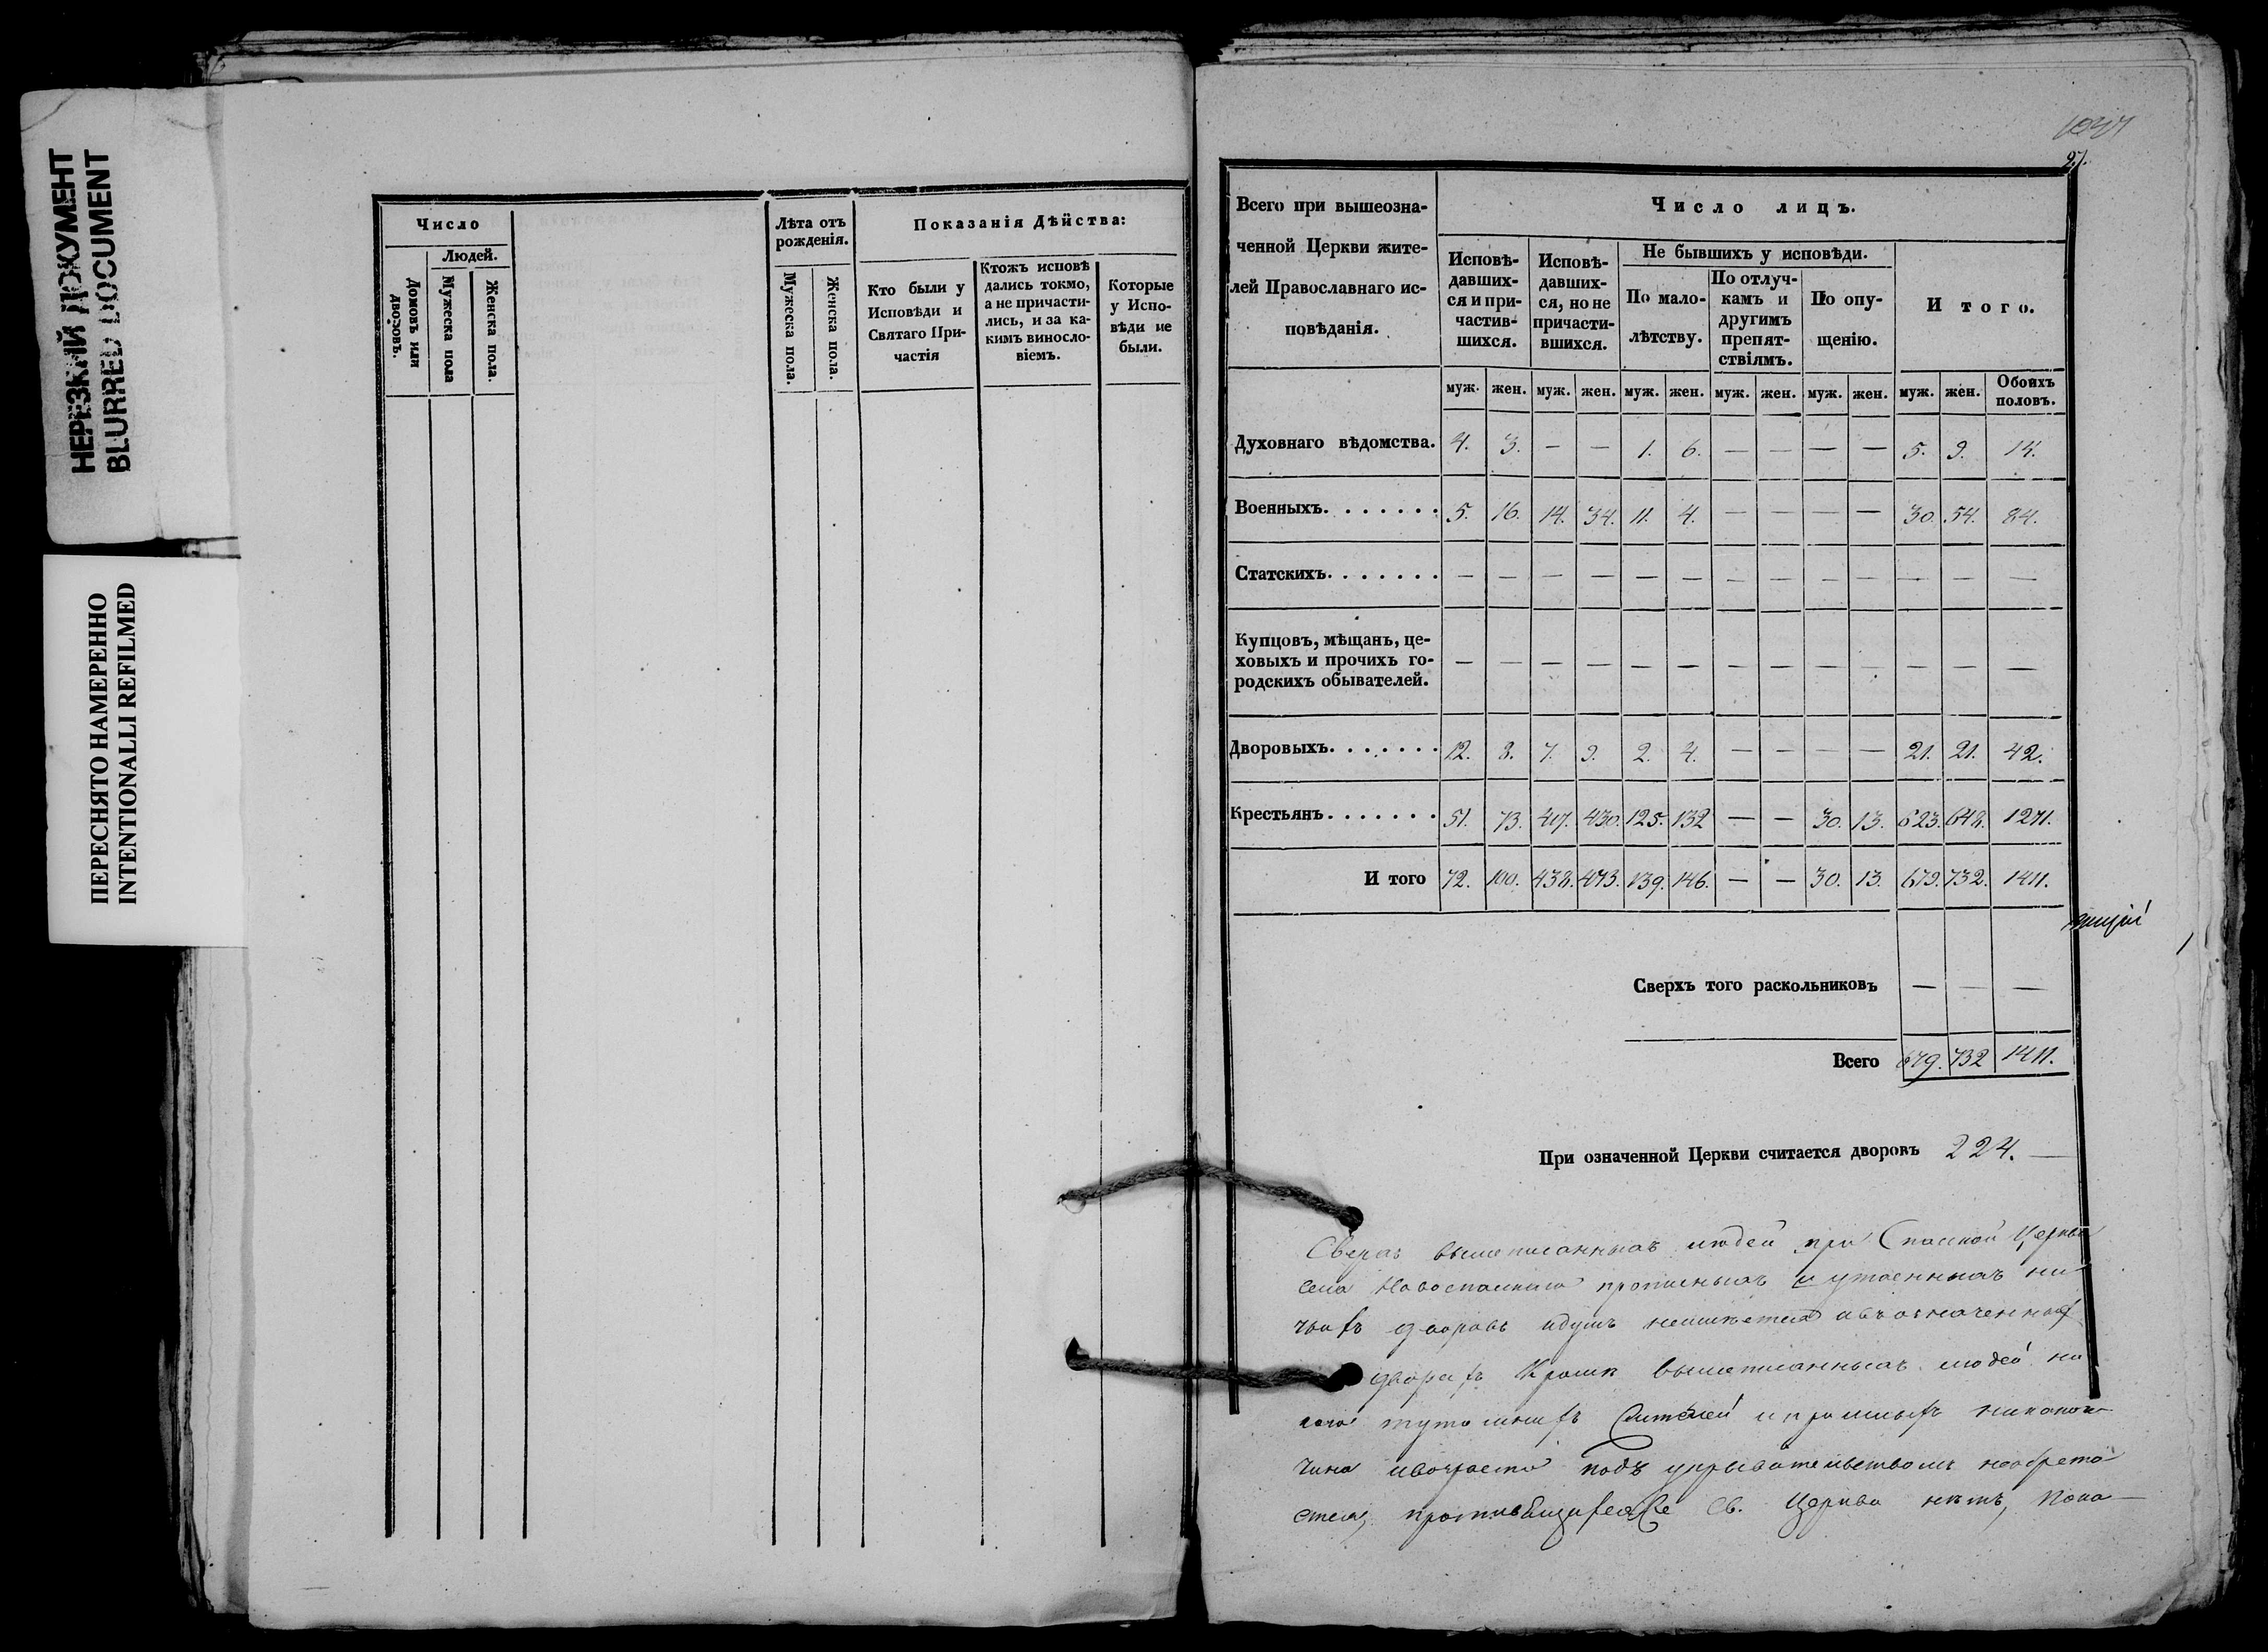 НЕРЕЗКИЙ ДОКУМЕНТ
BLURRED DOCUMENT
ПЕРЕСНЯТО НАМЕРЕННО
INTENTIONALLI REFILMED
Число
Домовъ или дворовъ.
Людей.
Мужеска пола
Женска пола.
Лѣта отъ рожденія.
Мужеска пола.
Женска пола.
Показанія Дѣйства:
Кто были у
Исповѣди и
Святаго При-
частія
Ктожъ исповѣ
дались токмо,
а не причасти-
лись, и за ка-
кимъ виносло-
віемъ.
Которые
у Испо-
вѣди не
были.
27.
Всего при вышеозна-
ченной Церкви жите-
лей Православнаго ис-
повѣданія.
Число лицъ.
Исповѣ-
давших-
ся и при-
частив-
шихся.
Исповѣ-
давших-
ся, но не
причасти-
вшихся.
Не бывшихъ у исповѣди.
По мало-
лѣтству.
По отлуч-
камъ и
другимъ
препят-
ствіямъ.
По опу-
щенію.
И того.
муж. жен. муж. жен. муж. жен. муж. жен. муж. жен. муж. жен. Обоихъ половъ.
Духовнаго вѣдомства. 4. 3. — — 1. 6. — — — — 5. 9. 14.
Военныхъ. . . . . . . 5. 16. 14. 34. 11. 4. — — — — 30. 54. 84.
Статскихъ. . . . . . . — — — — — — — — — — — — —
Купцовъ, мѣщанъ, це-
ховыхъ и прочихъ го-
родскихъ обывателей. — — — — — — — — — — — — —
Дворовыхъ. . . . . . . 12. 8. 7. 9. 2. 4. — — — — 21. 21. 42.
Крестьянъ. . . . . . . 51. 73. 417. 430. 125. 132 — — 30. 13. 623. 648. 1271.
И того 72. 100. 438. 473. 139. 146. — — 30. 13. 679. 732. 1411.
Сверхъ того раскольниковъ — — —
Всего 679. 732 1411.
При означенной Церкви считается дворовъ 224. —
Сверхъ вышеписанныхъ людей при Спаской Церкви
села Новоспаскаго прописныхъ и утаенныхъ ни-
дворовъ
дворахъ Кромѣ вышеписанныхъ людей
чина подъ укрывательствомъ необрета
Св. Церкви нѣтъ,